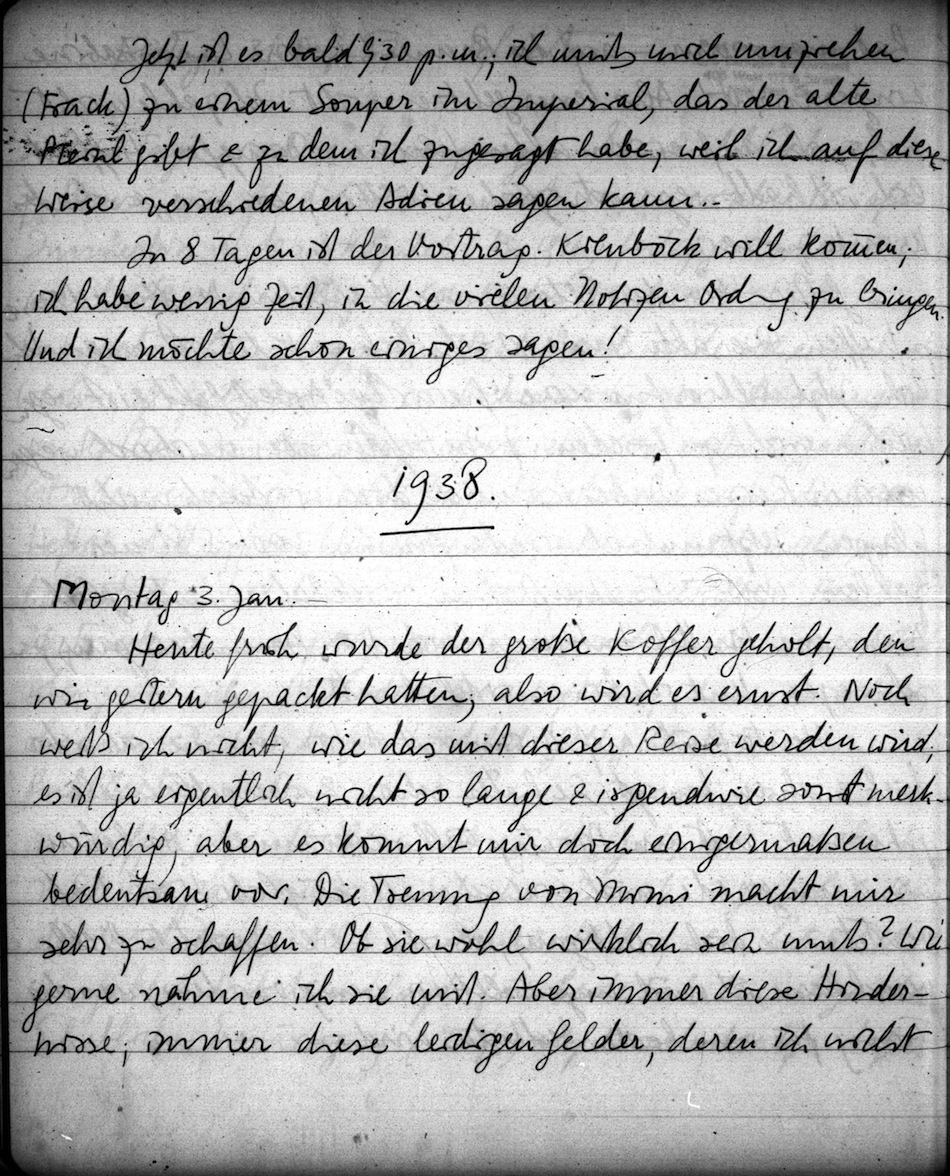 Jetzt ist es bald 9,30 p.m.; ich muß mich umziehen
(Frack) zu einem Souper im Imperial, das der alte
gibt & zu dem ich zugesagt habe, weil ich auf diese
Weise verschiedenen Adieu sagen kann.–
In 8 Tagen ist der Vortrag. Kienböck will kom̄en;
ich habe wenig Zeit, in die vielen Notizen Ordng zu bringen.
Und ich möchte schon einiges sagen!
1938.
Montag 3. Jan.–
Heute früh wurde der große Koffer geholt, den
wir gestern gepackt hatten; also wird es ernst. Noch
weiß ich nicht, wie das mit dieser Reise werden wird,
es ist ja eigentlich nicht so lange & irgendwie sonst merk-
würdig, aber es kommt mir doch einigermaßen
bedeutsam vor. Die Trennung von Mimi macht mir
sehr zu schaffen. Ob sie wohl wirklich sein muß? Wie
gerne nähme ich sie mit. Aber immer diese Hinder-
nisse, immer diese leidigen Gelder, deren ich nicht